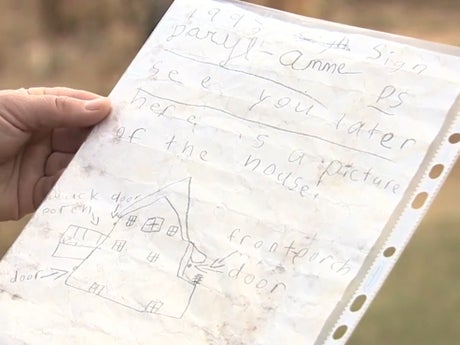 Sign
Daryl-Anne
see you later PS
here is a picture
of the house!
door
front porch
door
door